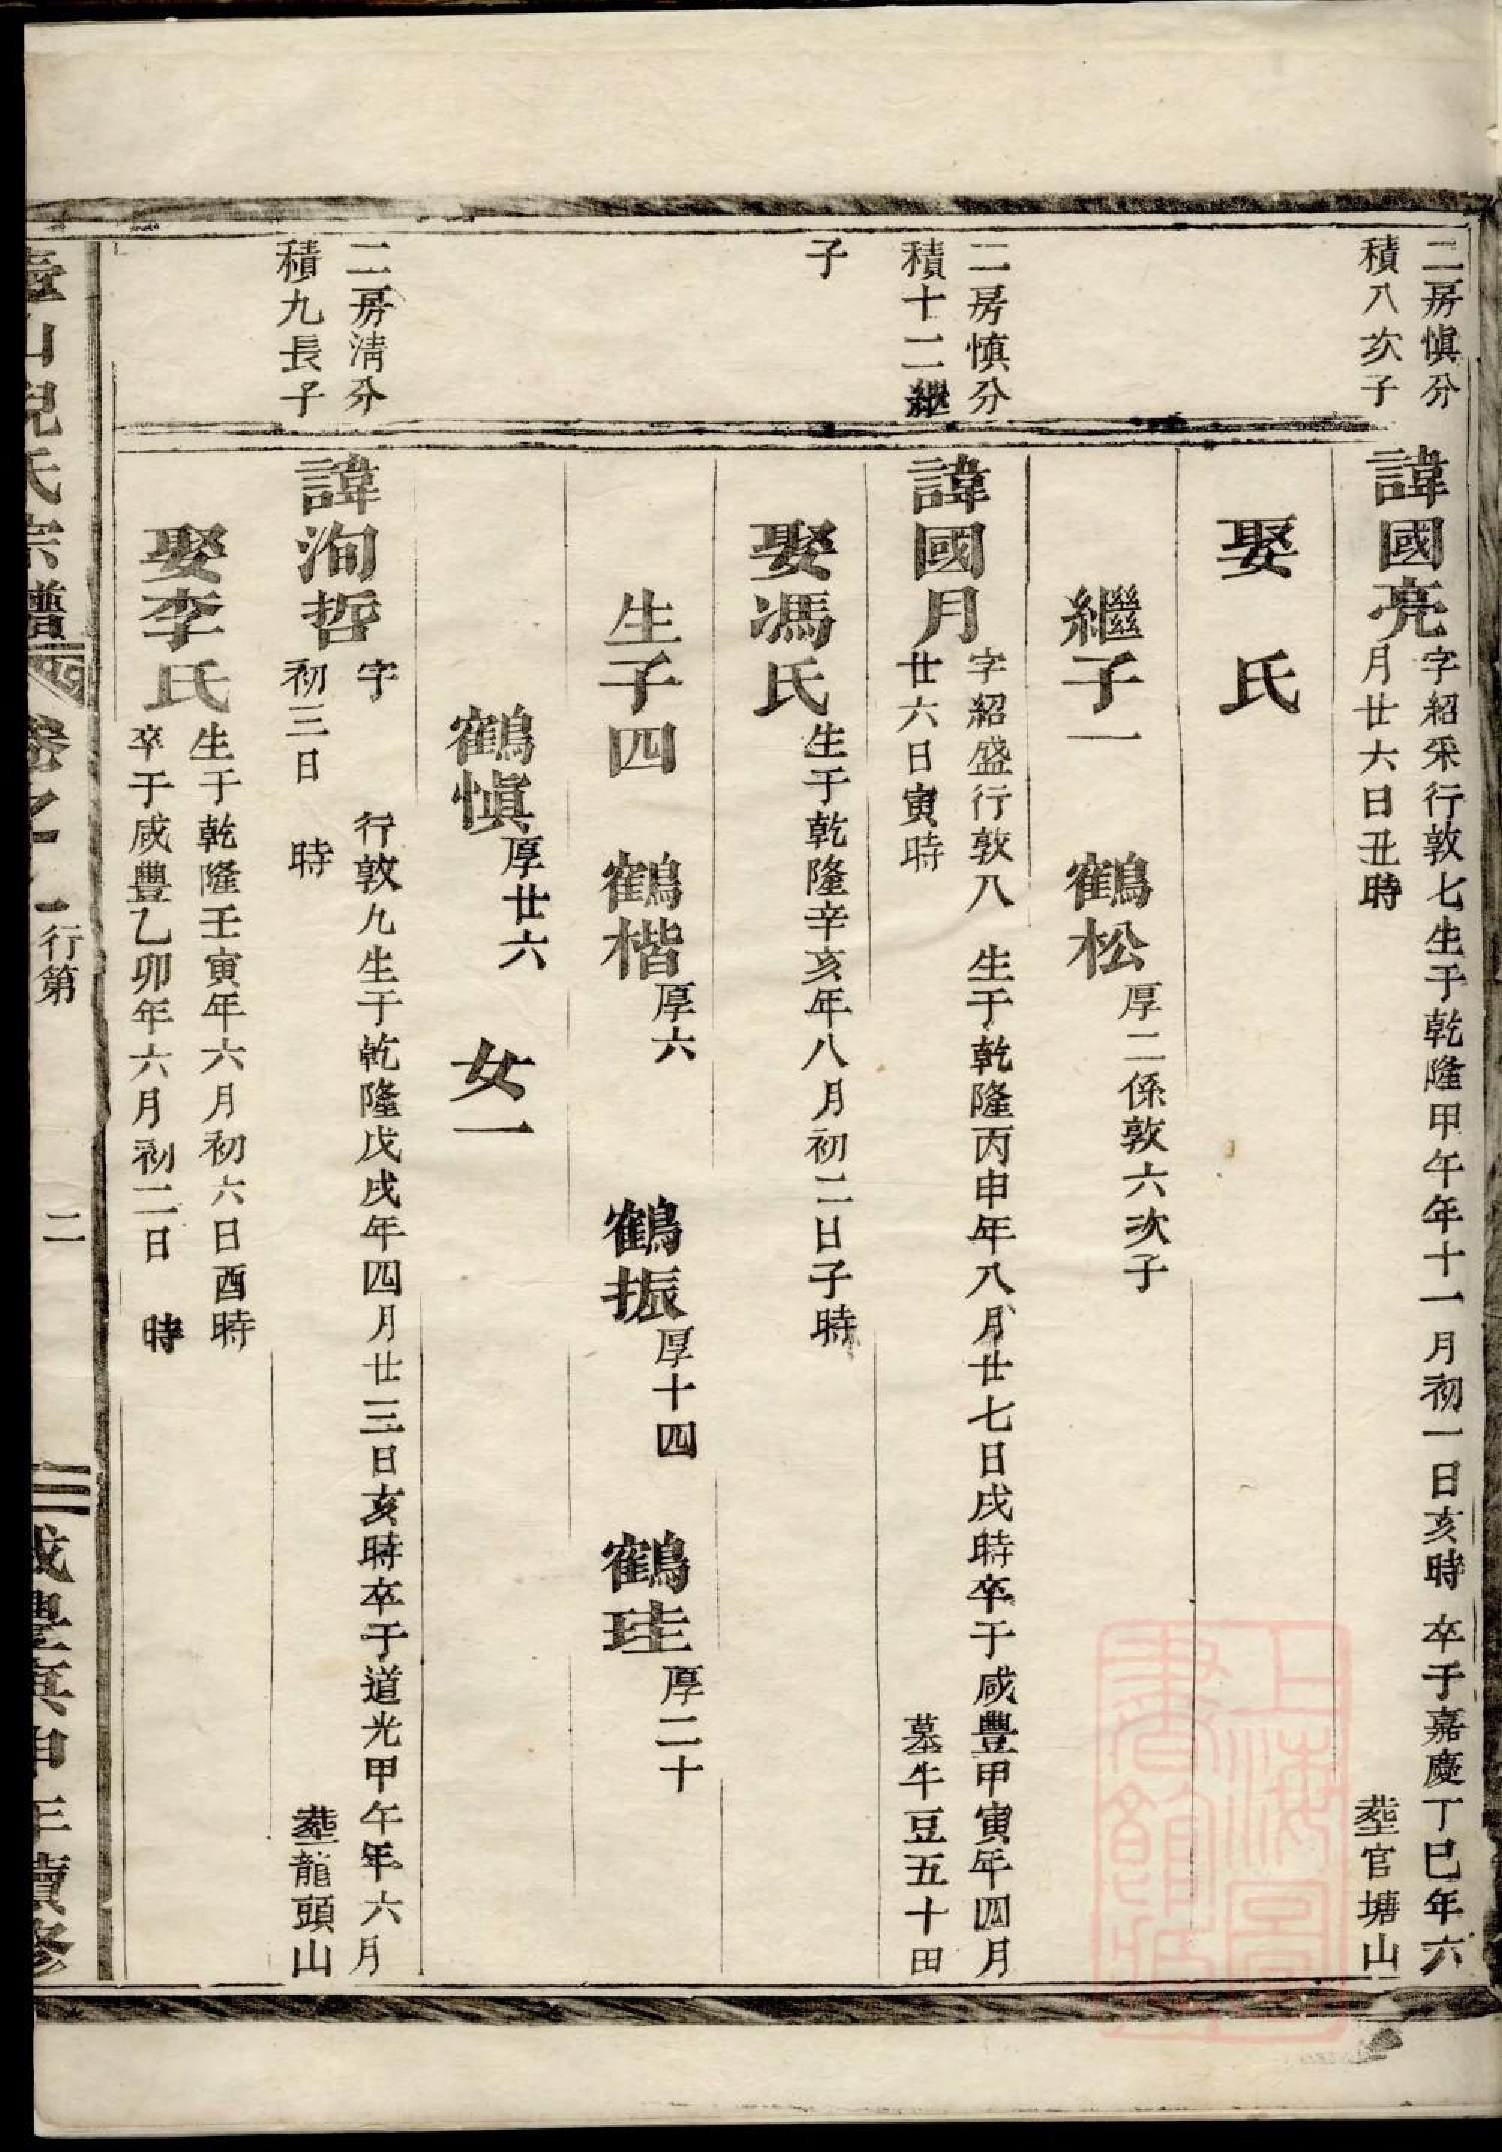 二房愼分
積八次子
諱國亮
字紹采行敦七生于乾隆甲午年十一月初一日亥時卒于嘉慶丁巳年六
月廿六日丑時 塟官塘山
娶 氏
繼子一 鶴松 厚二係敦六次子
二房愼分
積十二繼
子
諱國月
字紹盛行敦八 生于乾隆丙申年八月廿七日戌時卒于咸豐甲寅年四月
廿六日寅時 墓牛豆五十田
娶馮氏 生于乾隆辛亥年八月初二日子時
生子四 鶴楷 厚六 鶴振 厚十四 鶴珪 厚二十
鶴愼 厚廿六 女一
二房淸分
積九長子
諱洵哲
字 行敦九生于乾隆戊戌年四月廿三日亥時卒于道光甲午年六月
初三日 時 塟龍頭山
娶李氏
生于乾隆壬寅年六月初六日酉時
卒于咸豐乙卯年六月初二日 時
山倪氏宗譜 卷之 行第 二 咸豐庚申年續修
上海圖書館藏